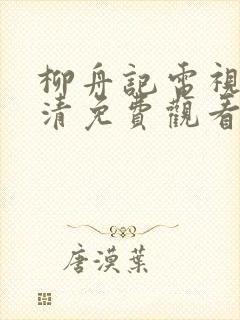 柳舟記電視
清免費觀看
唐漠葉